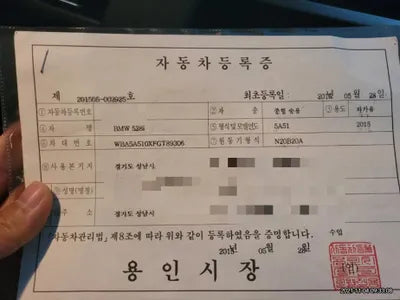 자동차등록증
제 201505-002925 호 최초등록일 : 2015년 05월 28일
①자동차등록번호 ②차 종 중형 승용 ③용도 자가용
④차 명 BMW 528i ⑤형식및모델연도 5A51 2015
⑥차 대 번 호 WBA5A510XFGT89306 ⑦원동기형식 N20B20A
⑧사 용 본 거 지 경기도 성남시
성명(명칭)
주 소 경기도 성남시
「자동차관리법」제8조에 따라 위와 같이 등록하였음을 증명합니다.
2015년 05월 28일
용 인 시 장